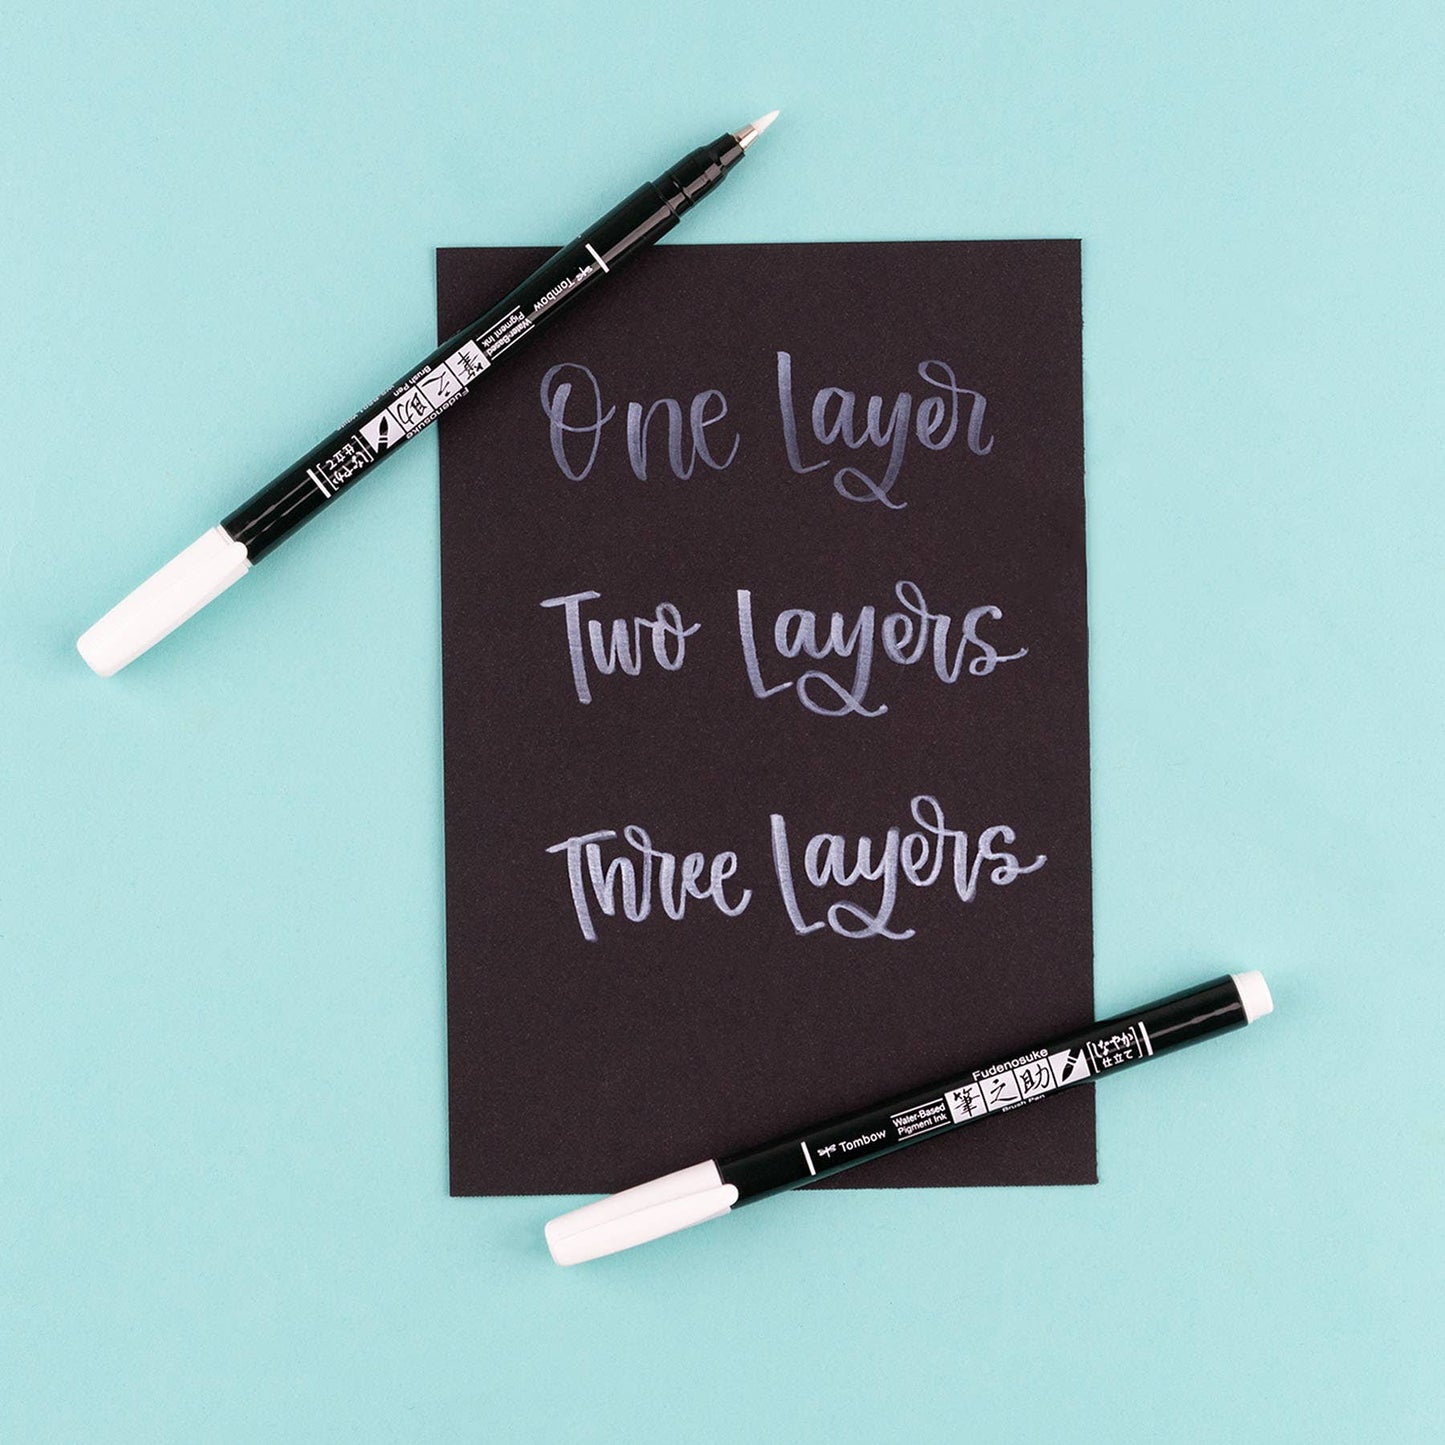 Tombow
Water-Based
Pigment Ink
筆之助
Brush Pen
Fudenosuke
[しなやか
仕立て]
One Layer
Two Layers
Three Layers
Tombow
Water-Based
Pigment Ink
Fudenosuke
筆之助
Brush Pen
[しなやか
仕立て]